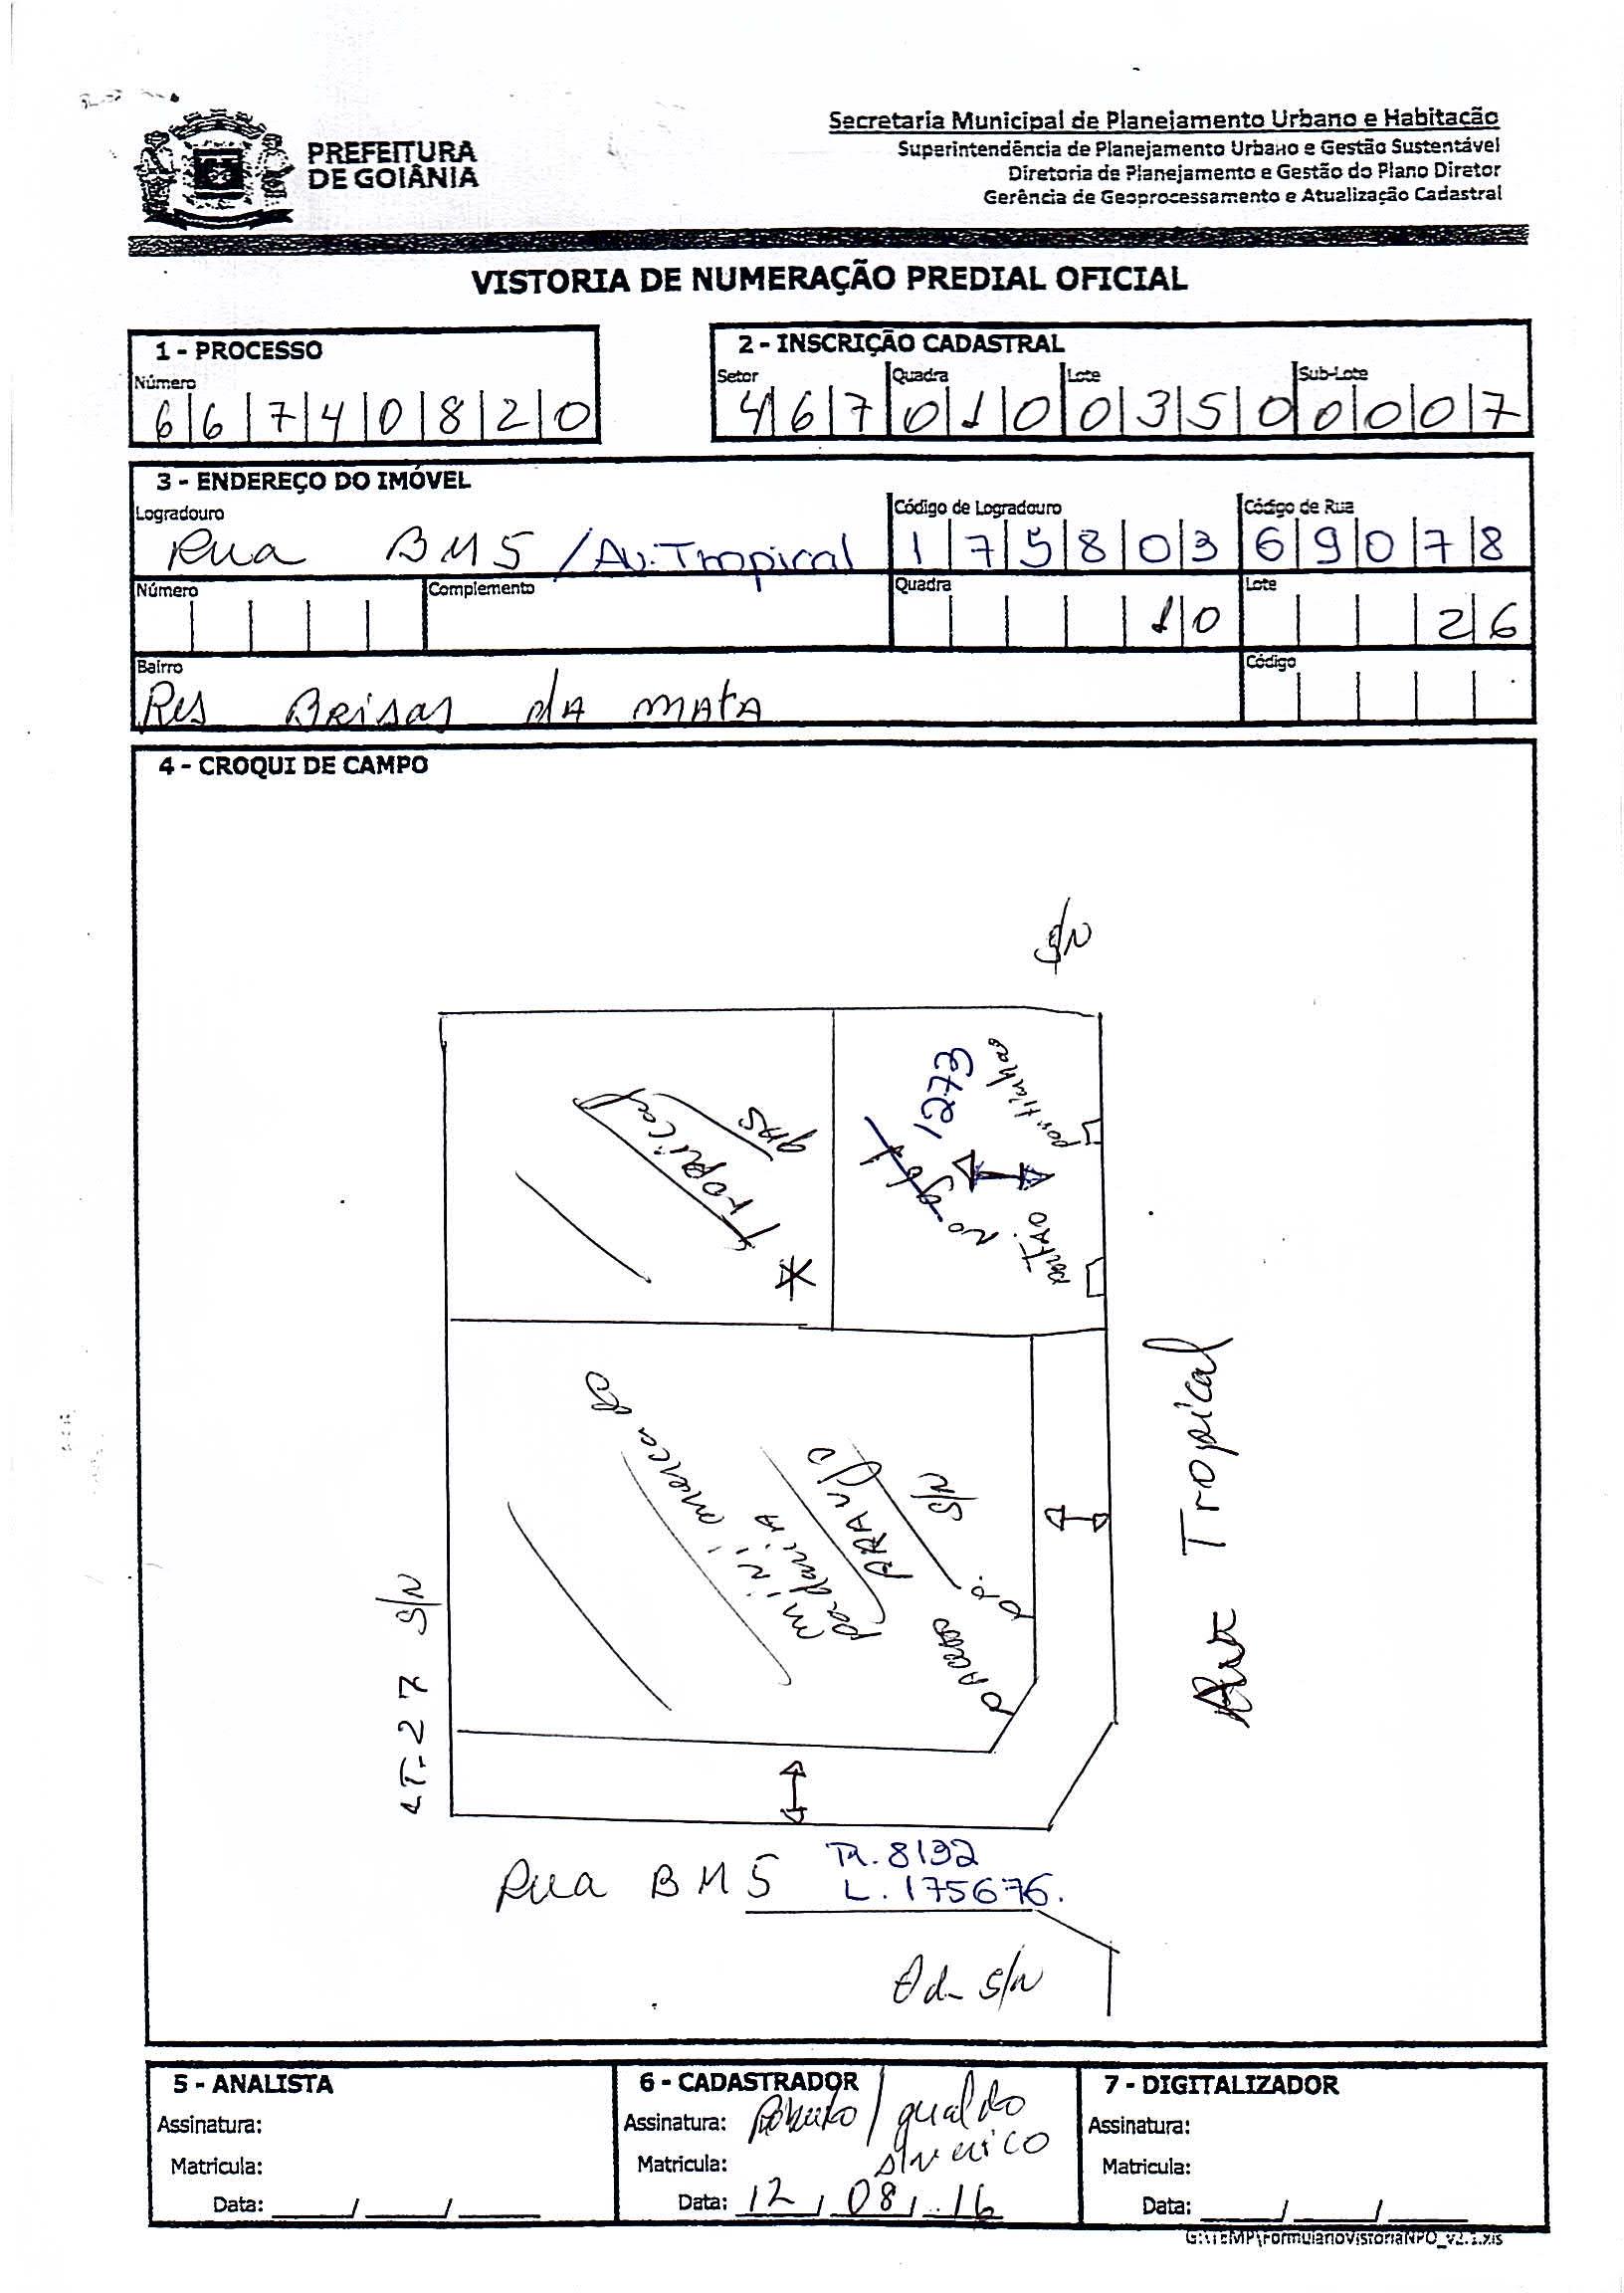 PREFEITURA
DE GOIÂNIA
Secretaria Municipal de Planejamento Urbano e Habitação
Superintendência de Planejamento Urbano e Gestão Sustentável
Diretoria de Planejamento e Gestão do Plano Diretor
Gerência de Geoprocessamento e Atualização Cadastral
VISTORIA DE NUMERAÇÃO PREDIAL OFICIAL
1 - PROCESSO
Número
6 6 7 4 0 8 2 0
2 - INSCRIÇÃO CADASTRAL
Setor Quadra Lote Sub-Lote
4 6 7 0 1 0 0 3 5 0 0 0 0 7
3 - ENDEREÇO DO IMÓVEL
Logradouro Código de Logradouro Código de Rua
Rua BM5 /Av. Tropical 1 7 5 8 0 3 6 9 0 7 8
Número Complemento Quadra Lote
10 26
Bairro Código
Res Brisas da mata
4 - CROQUI DE CAMPO
S/N
Tropical
gás
1273
nº
portinhao
portão
mini mercado
padaria
S/N
Acesso
p.
p
Av Tropical
LT-27 S/N
Rua BM5
TR. 8192
L. 175676.
Qd- S/N
5 - ANALISTA
Assinatura:
Matricula:
Data: ___/___/___
6 - CADASTRADOR
Assinatura: Roberto/
Matricula:
Data: 12/08/16
7 - DIGITALIZADOR
Assinatura:
Matricula:
Data: ___/___/___
G:\TEMP\FormularioVistoriaNPO_v2.1.xls